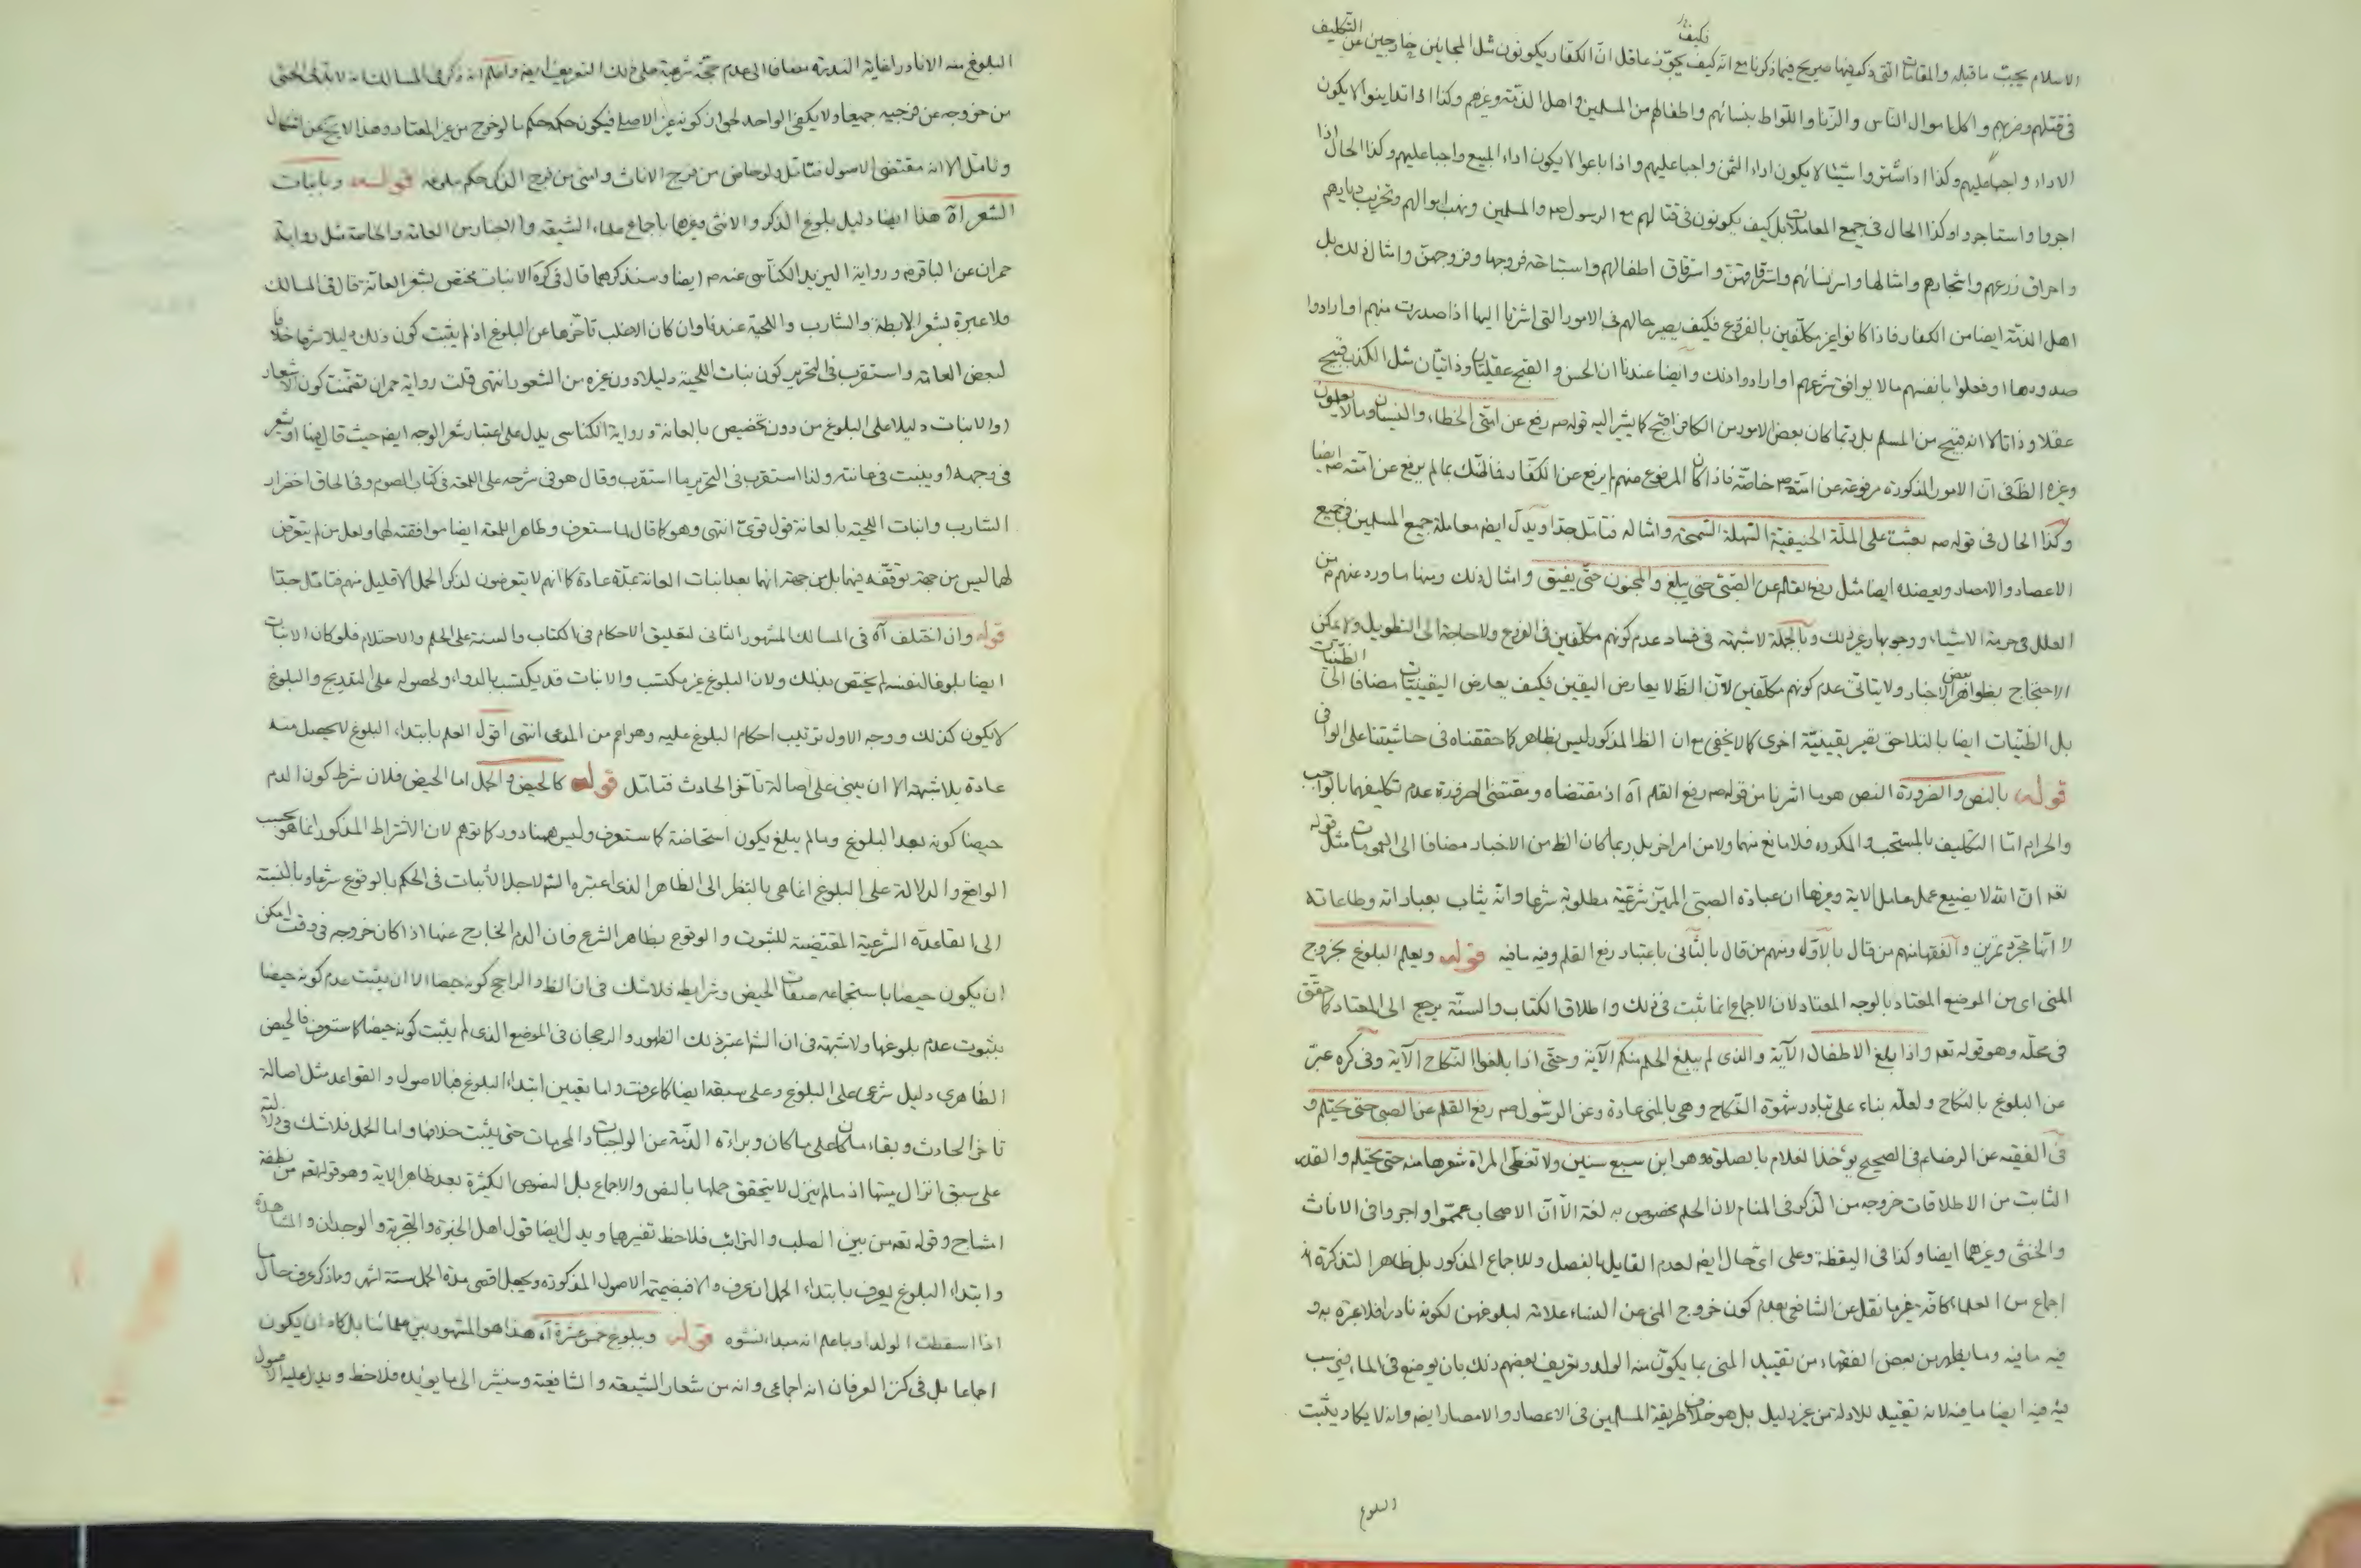 الاسلام يجبّ ما قبله والمقامات التى ذكر فيها صريح فيما ذكرنا مع انه كيف يجوّز عاقل انّ الكفار يكونون مثل المجانين خارجين عن التكليف
فى قتلهم وضربهم واكل اموال الناس والزّنا واللّواط بنسائهم واطفالهم من المسلمين واهل الذمّة وغيرهم وكذا اذا تداينوا لا يكون
الاداء واجبا عليهم وكذا اذا اشتروا شيئا لا يكون اداء الثمن واجبا عليهم واذا باعوا لا يكون اداء المبيع واجبا عليهم وكذا الحال اذا
اجروا واستاجروا وكذا الحال فى جميع المعاملات بل كيف يكونون فى قتالهم مع الرسول ص والمسلمين ونهب اموالهم وتخريب ديارهم
واحراق زرعهم واشجارهم وامثالها واسر نسائهم واسترقاقهنّ واسترقاق اطفالهم واستباحة فروجها وفروجهنّ وامثال ذلك بل
اهل الذمّة ايضا من الكفار فاذا كانوا غير مكلّفين بالفروع فكيف يصير حالهم فى الامور التى اشرنا اليها اذا صدرت منهم او ارادوا
صدورها او فعلوا بانفسهم ما لا يوافق شرعهم او ارادوا ذلك وايضا عندنا ان الحسن والقبح عقليّان وذاتيّان مثل الكذب قبيح
عقلا وذاتا لا انه قبيح من المسلم بل ربما كان بعض الامور من الكافر اقبح كما يشير اليه قوله ص رفع عن امّتى الخطاء والنسيان وما لا يعلمون
وغيره الظ فى انّ الامور المذكورة مرفوعة عن امّته ص خاصّة فاذا كان المرفوع منهم لم يرفع عن الكفّار فما ظنّك بما لم يرفع عن امّته ص ايضا
وكذا الحال فى قوله ص بعثت على الملّة الحنيفيّة السّهلة السّمحة وامثاله فتامّل جدّا ويدلّ ايض معاملة جميع المسلمين فى جميع
الاعصار والامصار ويعضده ايضا مثل رفع القلم عن الصّبىّ حتى يبلغ والمجنون حتّى يفيق وامثال ذلك ومنها ما ورد عنهم ع من
العلل فى حرمة الاشياء ووجوبها وغير ذلك وبالجملة لا شبهة فى فساد عدم كونهم مكلّفين فى الفروع ولا حاجة الى التطويل ولا يمكن
الاحتجاج بظواهر بعض الاخبار ولا يتاتّى عدم كونهم مكلّفين لانّ الظ لا يعارض اليقين فكيف يعارض اليقينيّات مضافا الى الظّنيّات
بل الظنّيّات ايضا بالتلاحق تصير يقينيّة اخرى كما لا يخفى مع ان الظ المذكور ليس بظاهر كما حققناه فى حاشيتنا على الوافى
قوله بالنص والضرورة النص هو ما اشرنا من قوله ص رفع القلم آه اذ مقتضاه ومقتضى الضرورة عدم تكليفهما بالواجب
والحرام امّا التكليف بالمستحب والمكروه فلا مانع منهما ولا من امر اخر بل ربما كان الظ من الاخبار مضافا الى العمومات مثل قوله
تعه ان الله لا يضيع عمل عامل الاية وغيرها ان عبادة الصبى المميّز شرعيّة مطلوبة شرعا وانّه يثاب بعباداته وطاعاته
لا انّها مجرّد تمرين والفقهاء منهم من قال بالاوّل ومنهم من قال بالثّانى باعتبار رفع القلم وفيه ما فيه قوله ويعلم البلوغ بخروج
المنى اى من الموضع المعتاد بالوجه المعتاد لان الاجماع انما ثبت فى ذلك واطلاق الكتاب والسنّة يرجع الى المعتاد كما حقق
فى محلّه وهو قوله تعه واذا بلغ الاطفال الآية والذى لم يبلغ الحلم منكم الآية وحتّى اذا بلغوا النّكاح الآية وفى كره عبّر
عن البلوغ بالنكاح ولعلّه بناء على تبادر شهوة النّكاح وهى بالمنى عادة وعن الرّسول ص رفع القلم عن الصبى حتى يحتلم و
فى الفقيه عن الرضا ع فى الصحيح يؤخذ الغلام بالصلوة وهو ابن سبع سنين ولا تغطّى المراة شعرها منه حتى يحتلم والقدر
الثابت من الاطلاقات خروجه من الذّكر فى المنام لان الحلم مخصوص به لغة الّا انّ الاصحاب عمّموا واجروا فى الاناث
والخنثى وغيرهما ايضا وكذا فى اليقظة وعلى اىّ حال ايض لعدم القايل بالفصل وللاجماع المذكور بل ظاهر التذكرة انه
اجماع من العلماء كافة غير ما نقل عن الشافعى بعدم كون خروج المنى عن النساء علامة لبلوغهن لكونه نادرا فلا عبرة به و
فيه ما فيه وما يظهر من بعض الفقهاء من تقييد المنى بما يكوّن منه الولد وتعريف بعضهم ذلك بان يوضع فى الماء فيرسب
فيه فيه ايضا ما فيه لانه تقييد للادلة من غير دليل بل هو خلاف طريقة المسلمين فى الاعصار والامصار ايض وانه لا يكاد يثبت
البلوغ
البلوغ منه الا نادرا لغاية الندرة مضافا الى عدم حجّة شرعية على ذلك التعريف ايض واعلم انه ذكر فى المسالك انه لابدّ فى الخنثى
من خروجه عن فرجيه جميعا ولا يكفى الواحد لجواز كونه غير الاصلى فيكون حكمه حكم ما لو خرج من غير المعتاد وهذا لا يخ عن اشكال
وتامّل الا انه مقتضى الاصول فتامّل ولو حاض من فرج الاناث وامنى من فرج الذكر حكم ببلوغه قوله وبانبات
الشعر آه هذا ايضا دليل بلوغ الذكر والانثى وغيرها باجماع علماء الشيعة والاخبار من العامّة والخاصّة مثل رواية
حمران عن الباقر ع ورواية اليزيد الكناسى عنه ع ايضا وسنذكرهما قال فى كره الانبات مختص بشعر العانة قال فى المسالك
ولا عبرة بشعر الابط والشارب واللحية عندنا وان كان الاغلب تأخّرها عن البلوغ اذ لم يثبت كون ذلك دليلا شرعا خلافا
لبعض العامة واستقرب فى التحرير كون نبات اللحية دليلا دون غيره من الشعور انتهى قلت رواية حمران تضمّنت كون الاشعار
او الانبات دليلا على البلوغ من دون تخصيص بالعانة ورواية الكناسى يدل على اعتبار شعر الوجه ايض حيث قال فيها او يشعر
فى وجهه او ينبت فى عانته ولذا استقرب فى التحرير ما استقرب وقال هو فى شرحه على اللمعة فى كتاب الصوم وفى الحاق اخضرار
الشارب وانبات اللحية بالعانة قول قوىّ انتهى وهو كما قال لما ستعرف وظاهر اللمعة ايضا موافقته لهما ولعل من لم يتعرّض
لهما ليس من جهة توقفه فيهما بل من جهة انهما بعد انبات العانة عادة كما انهم لا يتعرضون لذكر الحمل الا قليل منهم فتامّل جدّا
قوله وان اختلف آه فى المسالك المشهور الثانى لتعليق الاحكام فى الكتاب والسنة على الحلم والاحتلام فلو كان الانبات
ايضا بلوغا لنفسه لم يختص بذلك ولان البلوغ غير مكتسب والانبات قد يكتسب بالدواء ولحصوله على التدريج والبلوغ
لا يكون كذلك ووجه الاول ترتيب احكام البلوغ عليه وهو اعم من المدعى انتهى اقول العلم بابتداء البلوغ لا يحصل منه
عادة بلا شبهة الا ان يبنى على اصالة تأخّر الحادث فتامّل قوله كالحيض والحمل اما الحيض فلان شرط كون الدم
حيضا كونه بعد البلوغ وما لم يبلغ يكون استحاضة كما ستعرف وليس هنا دور كما توهم لان الاشتراط المذكور انما هو بحسب
الواقع والدلالة على البلوغ انما هى بالنظر الى الظاهر الذى اعتبره الشرع لاجل الاثبات فى الحكم بالوقوع شرعا وبالنسبة
الى القاعدة الشرعية المقتضية للثبوت والوقوع بظاهر الشرع فان الدم الخارج عنها اذا كان خروجه فى وقت امكن
ان يكون حيضا باستجماعه صفات الحيض وشرايطه فلا شك فى ان الظ والراجح كونه حيضا الا ان يثبت عدم كونه حيضا
بثبوت عدم بلوغها ولا شبهة فى ان الشرع اعتبر ذلك الظهور والرجحان فى الموضع الذى لم يثبت كونه حيضا كما ستعرف فالحيض
الظاهرى دليل شرعى على البلوغ وعلى سبقه ايضا كما عرفت واما تعيين ابتداء البلوغ فبالاصول والقواعد مثل اصالة
تاخر الحادث وبقاء ما كان على ما كان وبراءة الذمّة عن الواجبات والمحرمات حتى يثبت خلافها واما الحمل فلا شك فى دلالته
على سبق انزال منيّها اذ ما لم ينزل لا يتحقق حملها بالنص والاجماع بل النصوص الكثيرة بعد ظاهر الاية وهو قوله تعه من نطفة
امشاج وقوله تعه من بين الصلب والترائب فلاحظ تفسيرها ويدل ايضا قول اهل الخبرة والتجربة والوجدان والمشاهدة
وابتداء البلوغ يعرف بابتداء الحمل ان عرف والا فبضميمة الاصول المذكورة ويجعل اقصى مدة الحمل ستة اشهر وما ذكر عرف حال
اذا اسقطت الولد او ما علم انه مبداء نشوه قوله وببلوغ خمس عشرة آه هذا هو المشهور بين علمائنا بل كاد ان يكون
اجماعا بل فى كنز العرفان انه اجماعى وانه من شعار الشيعة والشافعية وسنشير الى ما يؤيده فلاحظ ويدل عليه الاصول